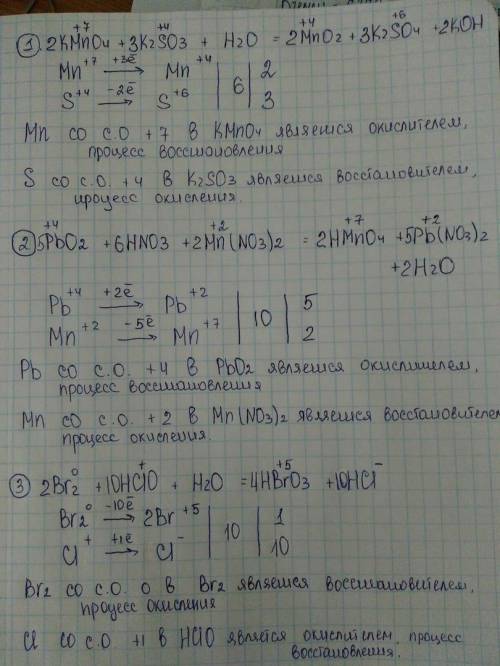 +7 +4 +4 +6
① 2KMnO4 + 3K2SO3 + H2O = 2MnO2 + 3K2SO4 + 2KOH
Mn+7 +3ē → Mn+4 | 6 | 2
S+4 -2ē → S+6 | 3
Mn со с.о +7 в KMnO4 является окислителем,
процесс восстановления
S со с.о. +4 в K2SO3 является восстановителем,
процесс окисления.
+4 +2 +7 +2
② 5PbO2 + 6HNO3 + 2Mn(NO3)2 = 2HMnO4 + 5Pb(NO3)2
+ 2H2O
Pb+4 +2ē → Pb+2 | 10 | 5
Mn+2 -5ē → Mn+7 | 2
Pb со с.о. +4 в PbO2 является окислителем,
процесс восстановления
Mn со с.о. +2 в Mn(NO3)2 является восстановителем
процесс окисления.
0 + +5 -
③ 2Br2 + 10HClO + H2O = 4HBrO3 + 10HCl
Br2 0 -10ē → 2Br+5 | 10 | 1
Cl+ +1ē → Cl- | 10
Br2 со с.о. 0 в Br2 является восстановителем,
процесс окисления
Cl со с.о +1 в HClO является окислителем, процесс
восстановления.